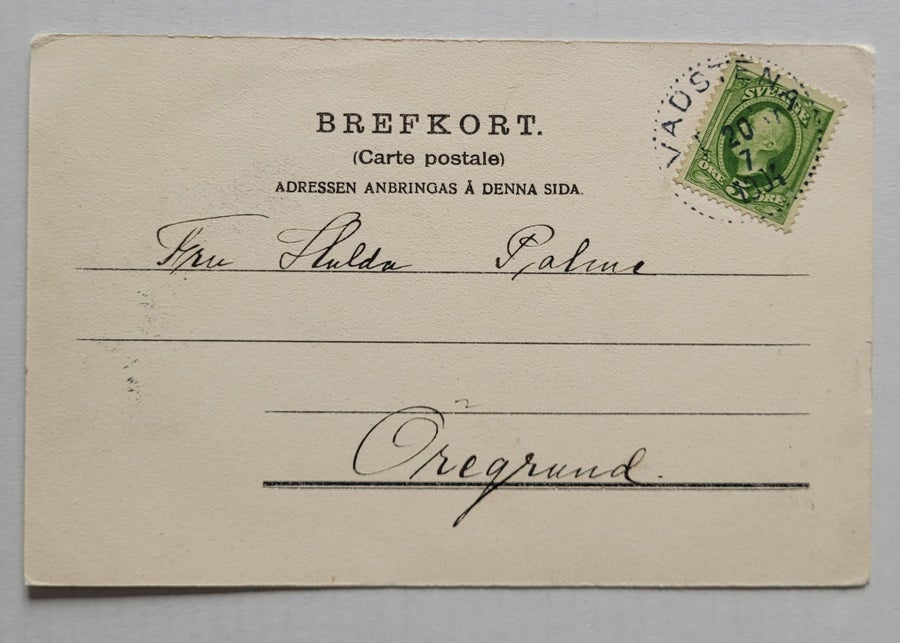 BREFKORT.
(Carte postale)
ADRESSEN ANBRINGAS Å DENNA SIDA.
VADSTENA
20
7
1904
SVERIGE
FEM ÖRE
Fru Hulda Palme
Öregrund.